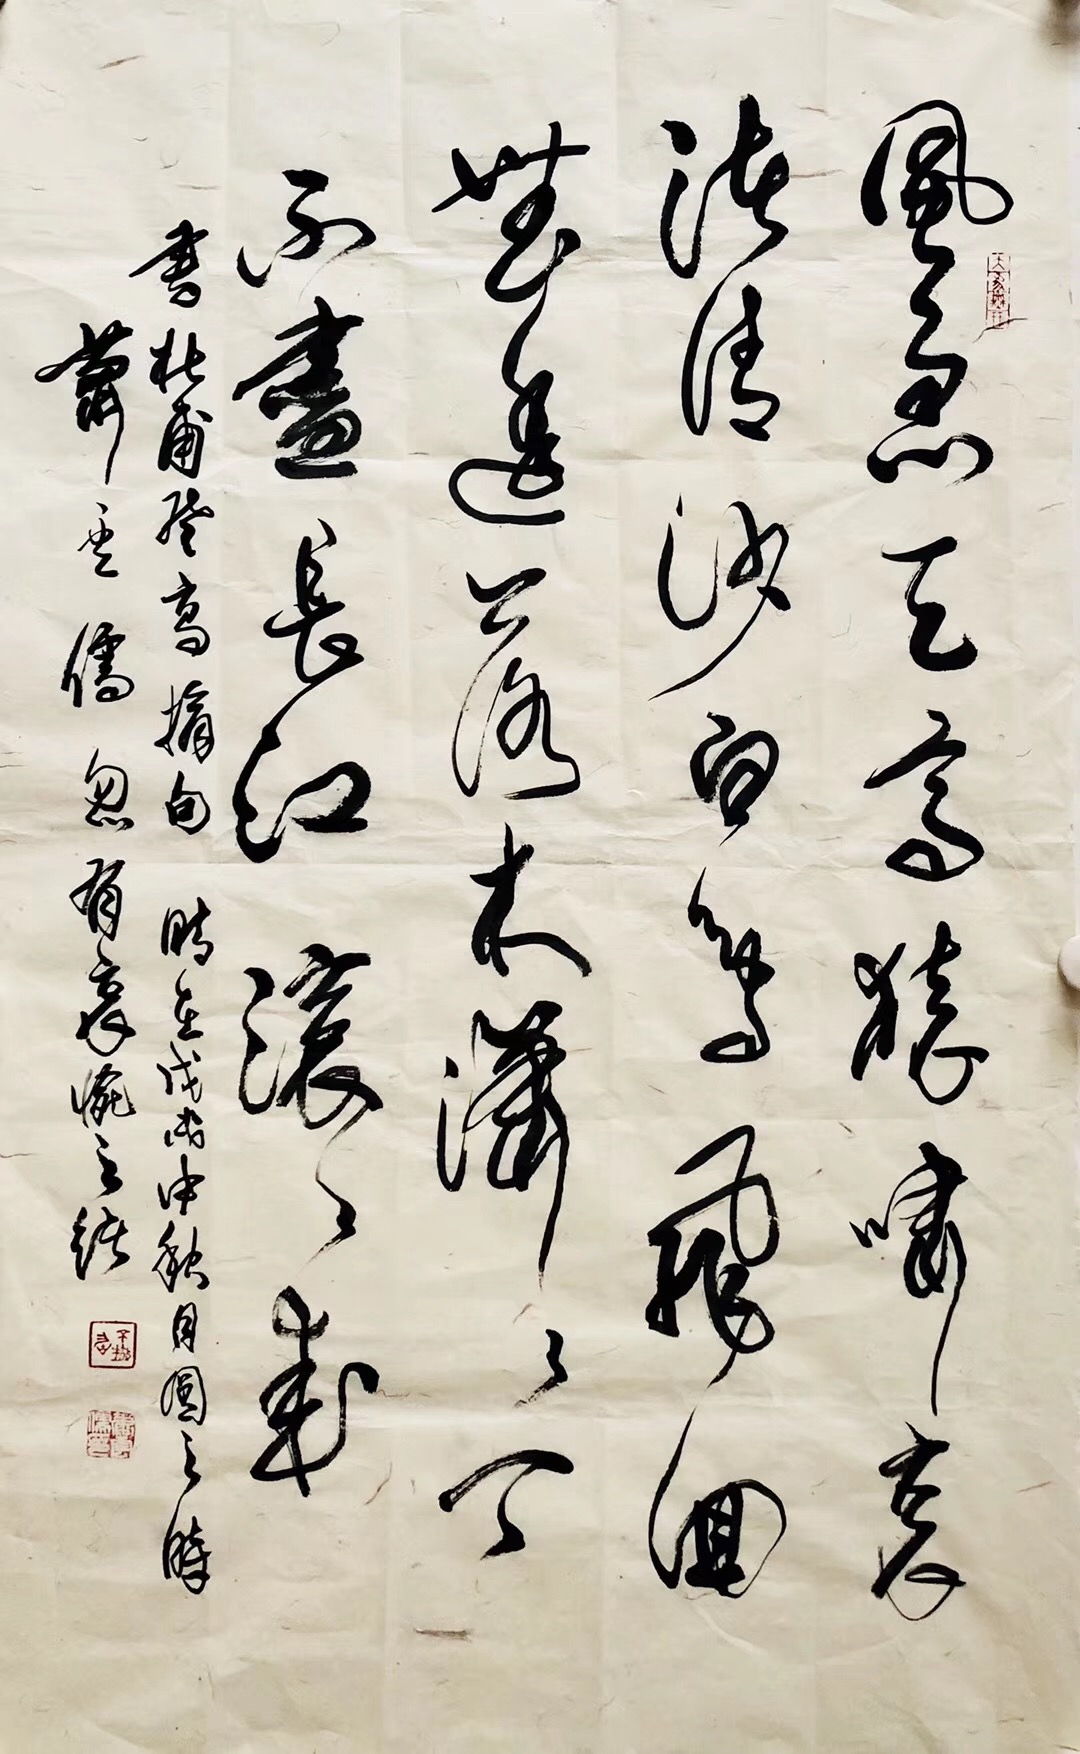 風急天高猿嘯哀
渚清沙白鳥飛迴
無邊落木瀟々下
不盡長江滾々來
書杜甫登高摘句 時在戊戌中秋月圓之時
蕭雲儒忽有哀惋之緒